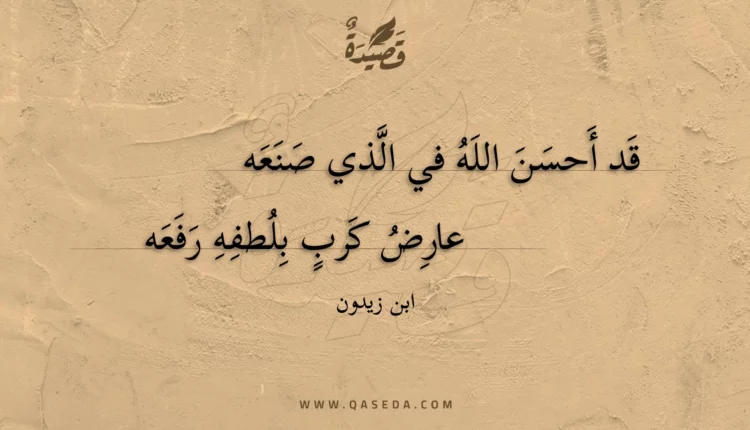 قَصِيْدَةٌ
قَد أَحسَنَ اللَهُ في الَّذي صَنَعَه
عارِضُ كَربٍ بِلُطفِهِ رَفَعَه
ابن زيدون
WWW.QASEDA.COM